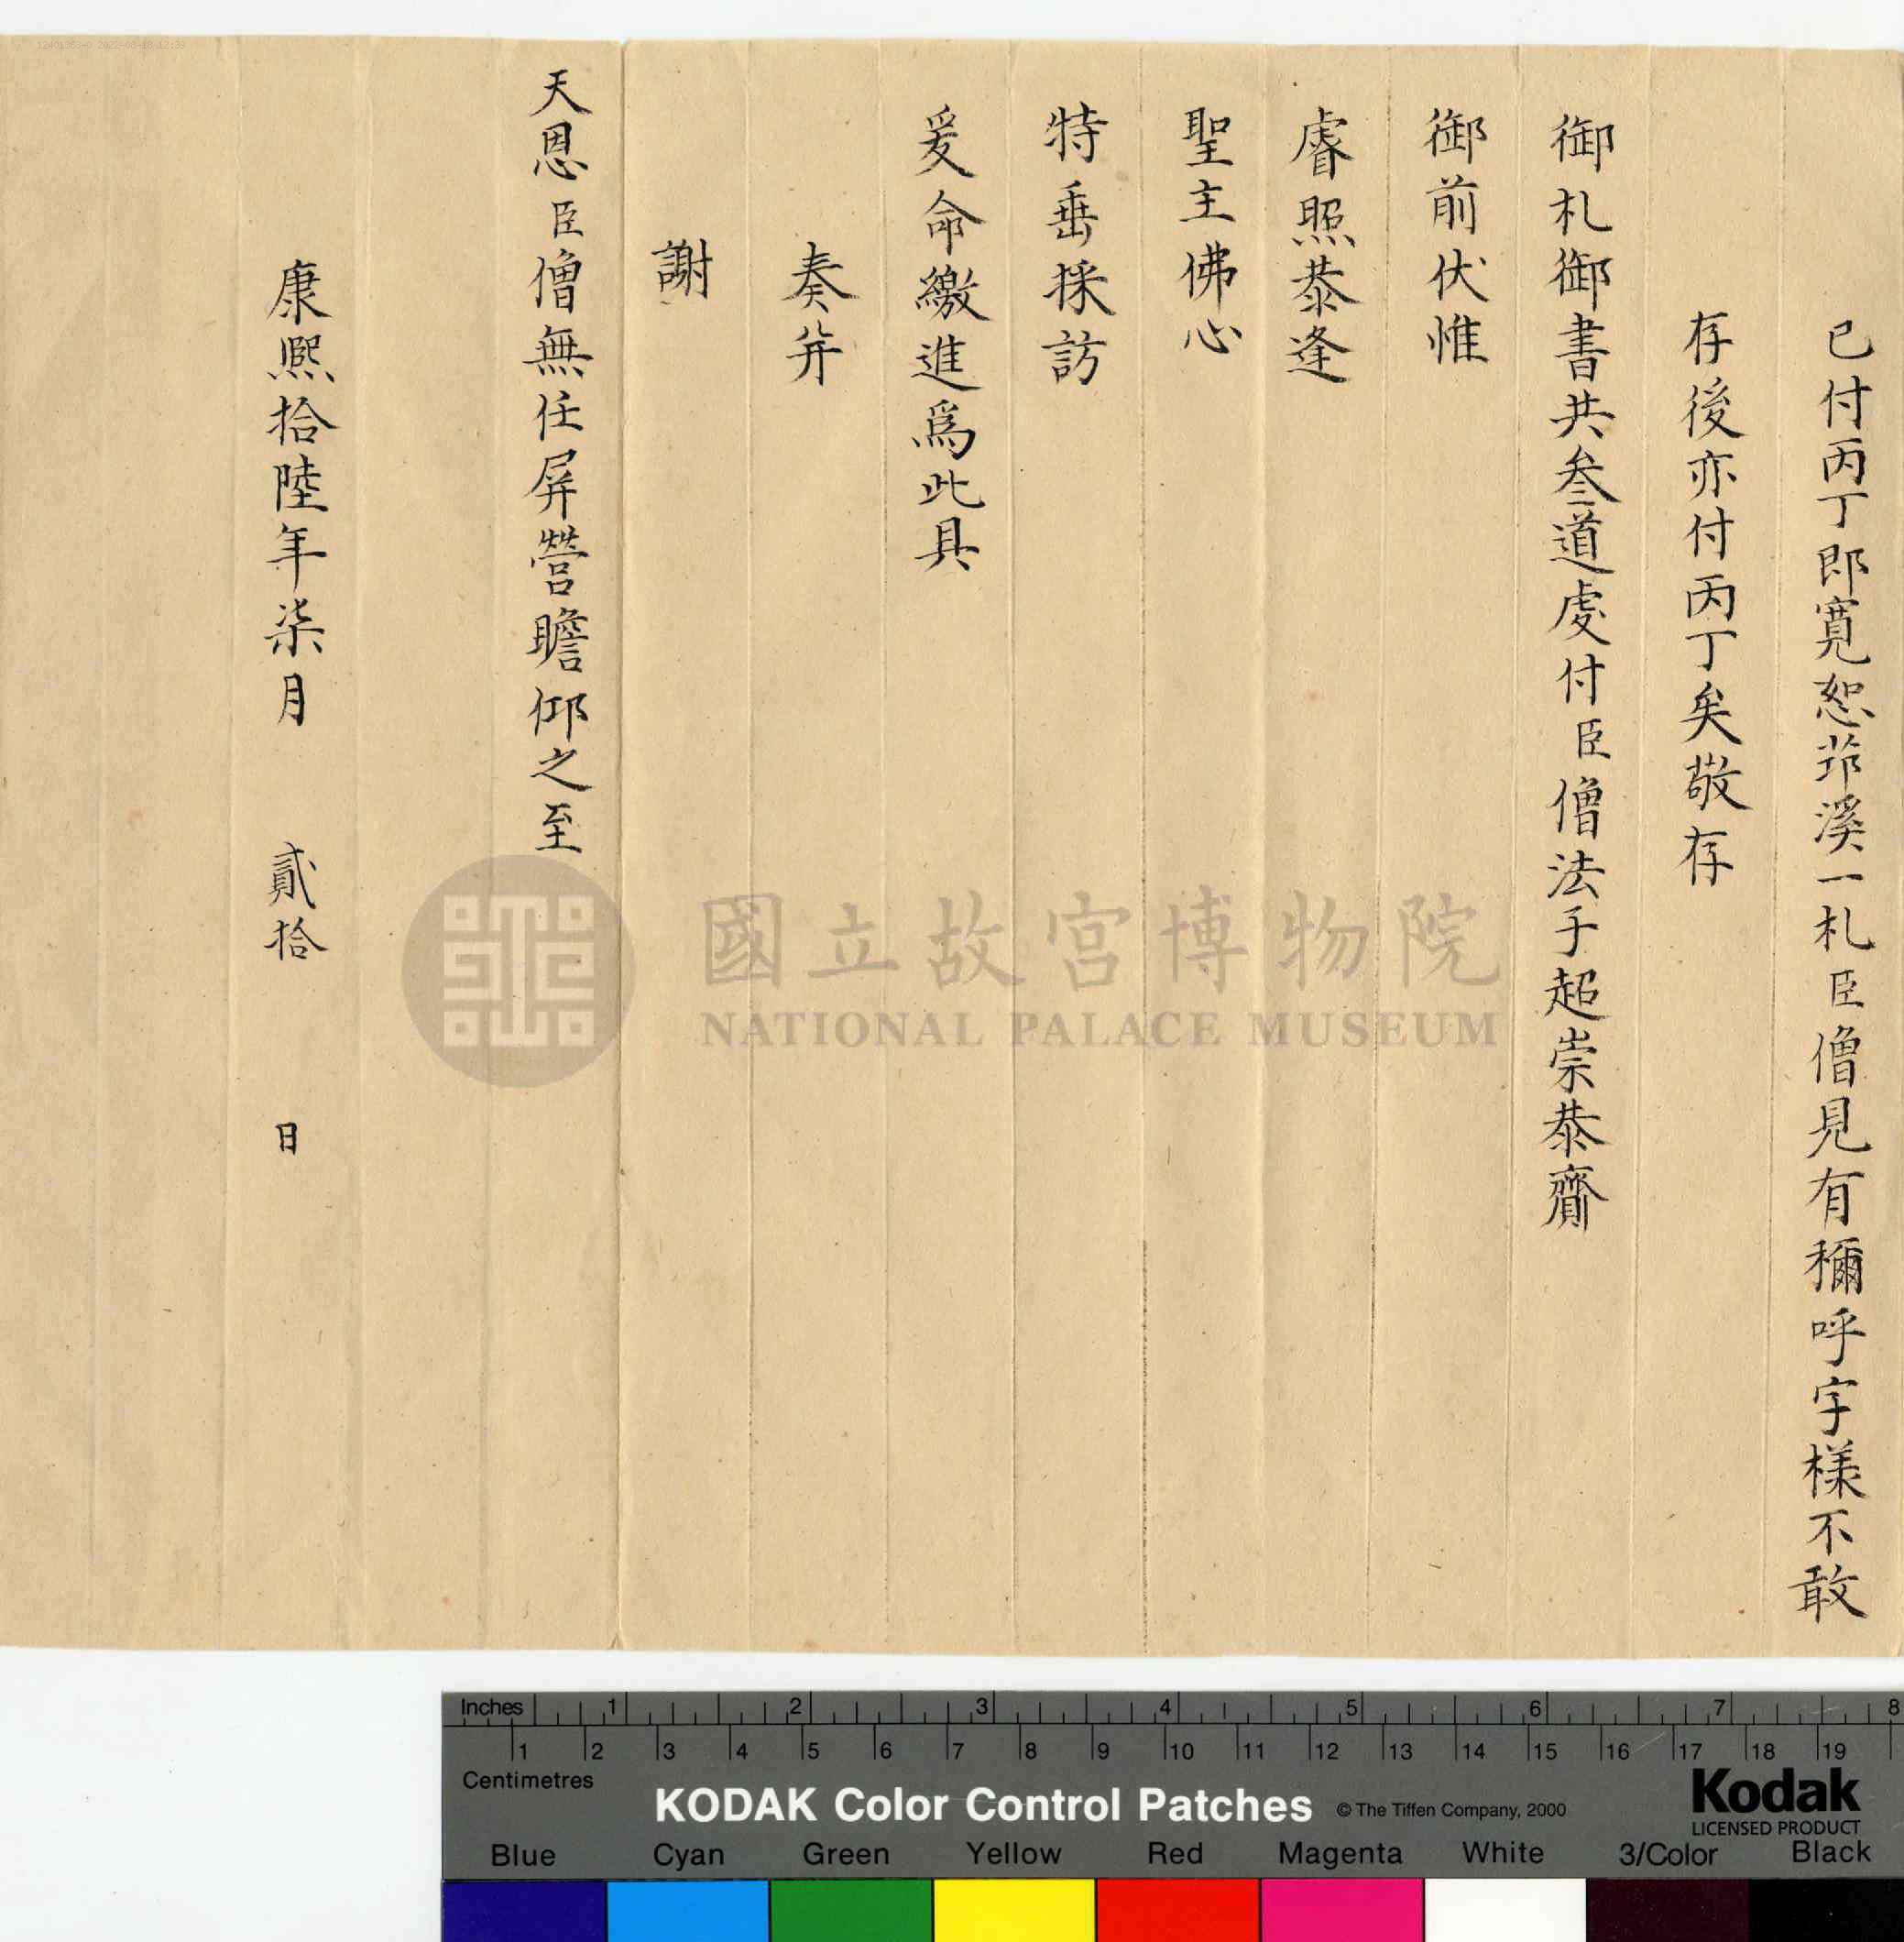 已付丙丁郎寬恕茆溪一札臣僧見有稱呼字樣不敢
存後亦付丙丁矣敬存
御札御書共叄道處付臣僧法子超崇恭齎
御前伏惟
睿照恭逢
聖主佛心
特垂採訪
爰命繳進爲此具
奏并
謝
天恩臣僧無任屏營瞻仰之至
康熙拾陸年柒月 貳拾 日
國立故宮博物院
NATIONAL PALACE MUSEUM
Inches 1 2 3 4 5 6 7 8
1 2 3 4 5 6 7 8 9 10 11 12 13 14 15 16 17 18 19
Centimetres
KODAK Color Control Patches © The Tiffen Company, 2000
Kodak
LICENSED PRODUCT
Blue Cyan Green Yellow Red Magenta White 3/Color Black